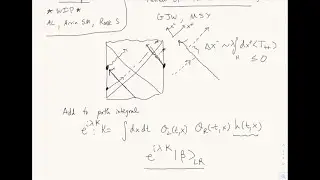 ★ WIP
AC, Arvin SM, Ronak S
GJW, MSY
x⁻
x⁺
Δx⁻ ~ λ∫dx⁺⟨T₊₊⟩
≤ 0
Add to path integral
e^{iλK} K = ∫dxdt O_L(t,x) O_R(-t,x) h(t,x)
e^{iλK}|β⟩_{LR}